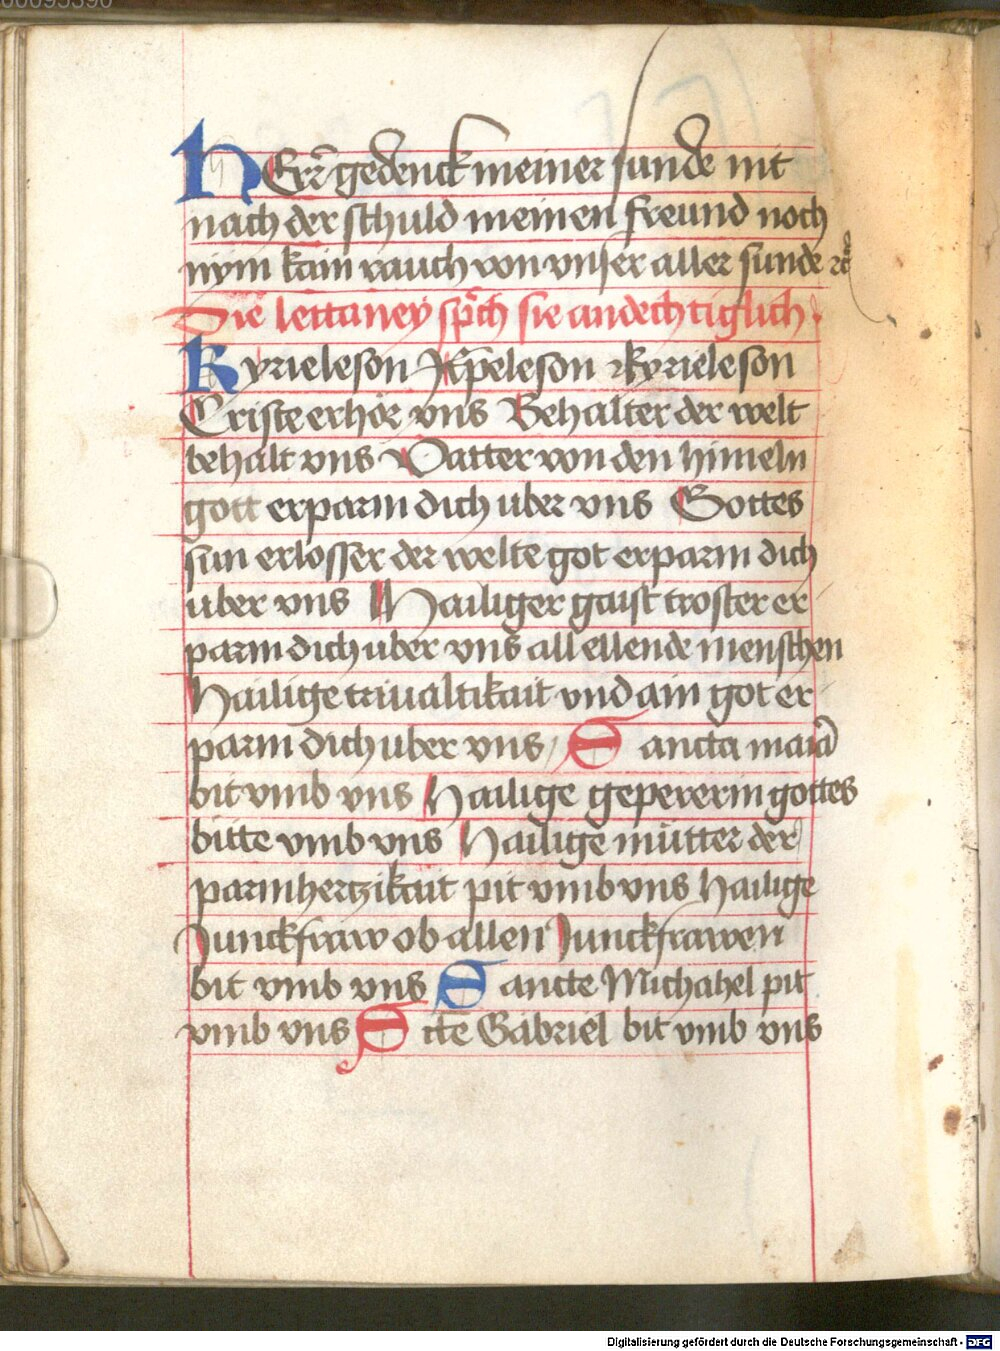 00095390
HErr gedenck meiner sunde nit
nach der schuld meinen freund noch
nym kain rauch von vnser aller sunde ꝛc̃
Die lettaney sp̃ch sie andechtiglich
Kyrieleson Xp̃eleson Kyrieleson
Criste erhör vns Behalter der welt
behalt vns Vatter von den himeln
gott erparm dich uber vns Gottes
sun erlosser der welte got erparm dich
uber vns Hailiger gaist troster er
parm dich uber vns all ellende menschen
Hailige triualtikait vnd ain got er
parm dich uber vns Sancta maria
bit vmb vns Hailige gepererin gottes
bitte vmb vns Hailige můtter der
parmhertzikait pit vmb vns Hailige
Junckfraw ob allen Junckfrawen
bit vmb vns Sancte Michahel pit
vmb vns Scte Gabriel bit vmb vns
Digitalisierung gefördert durch die Deutsche Forschungsgemeinschaft - DFG